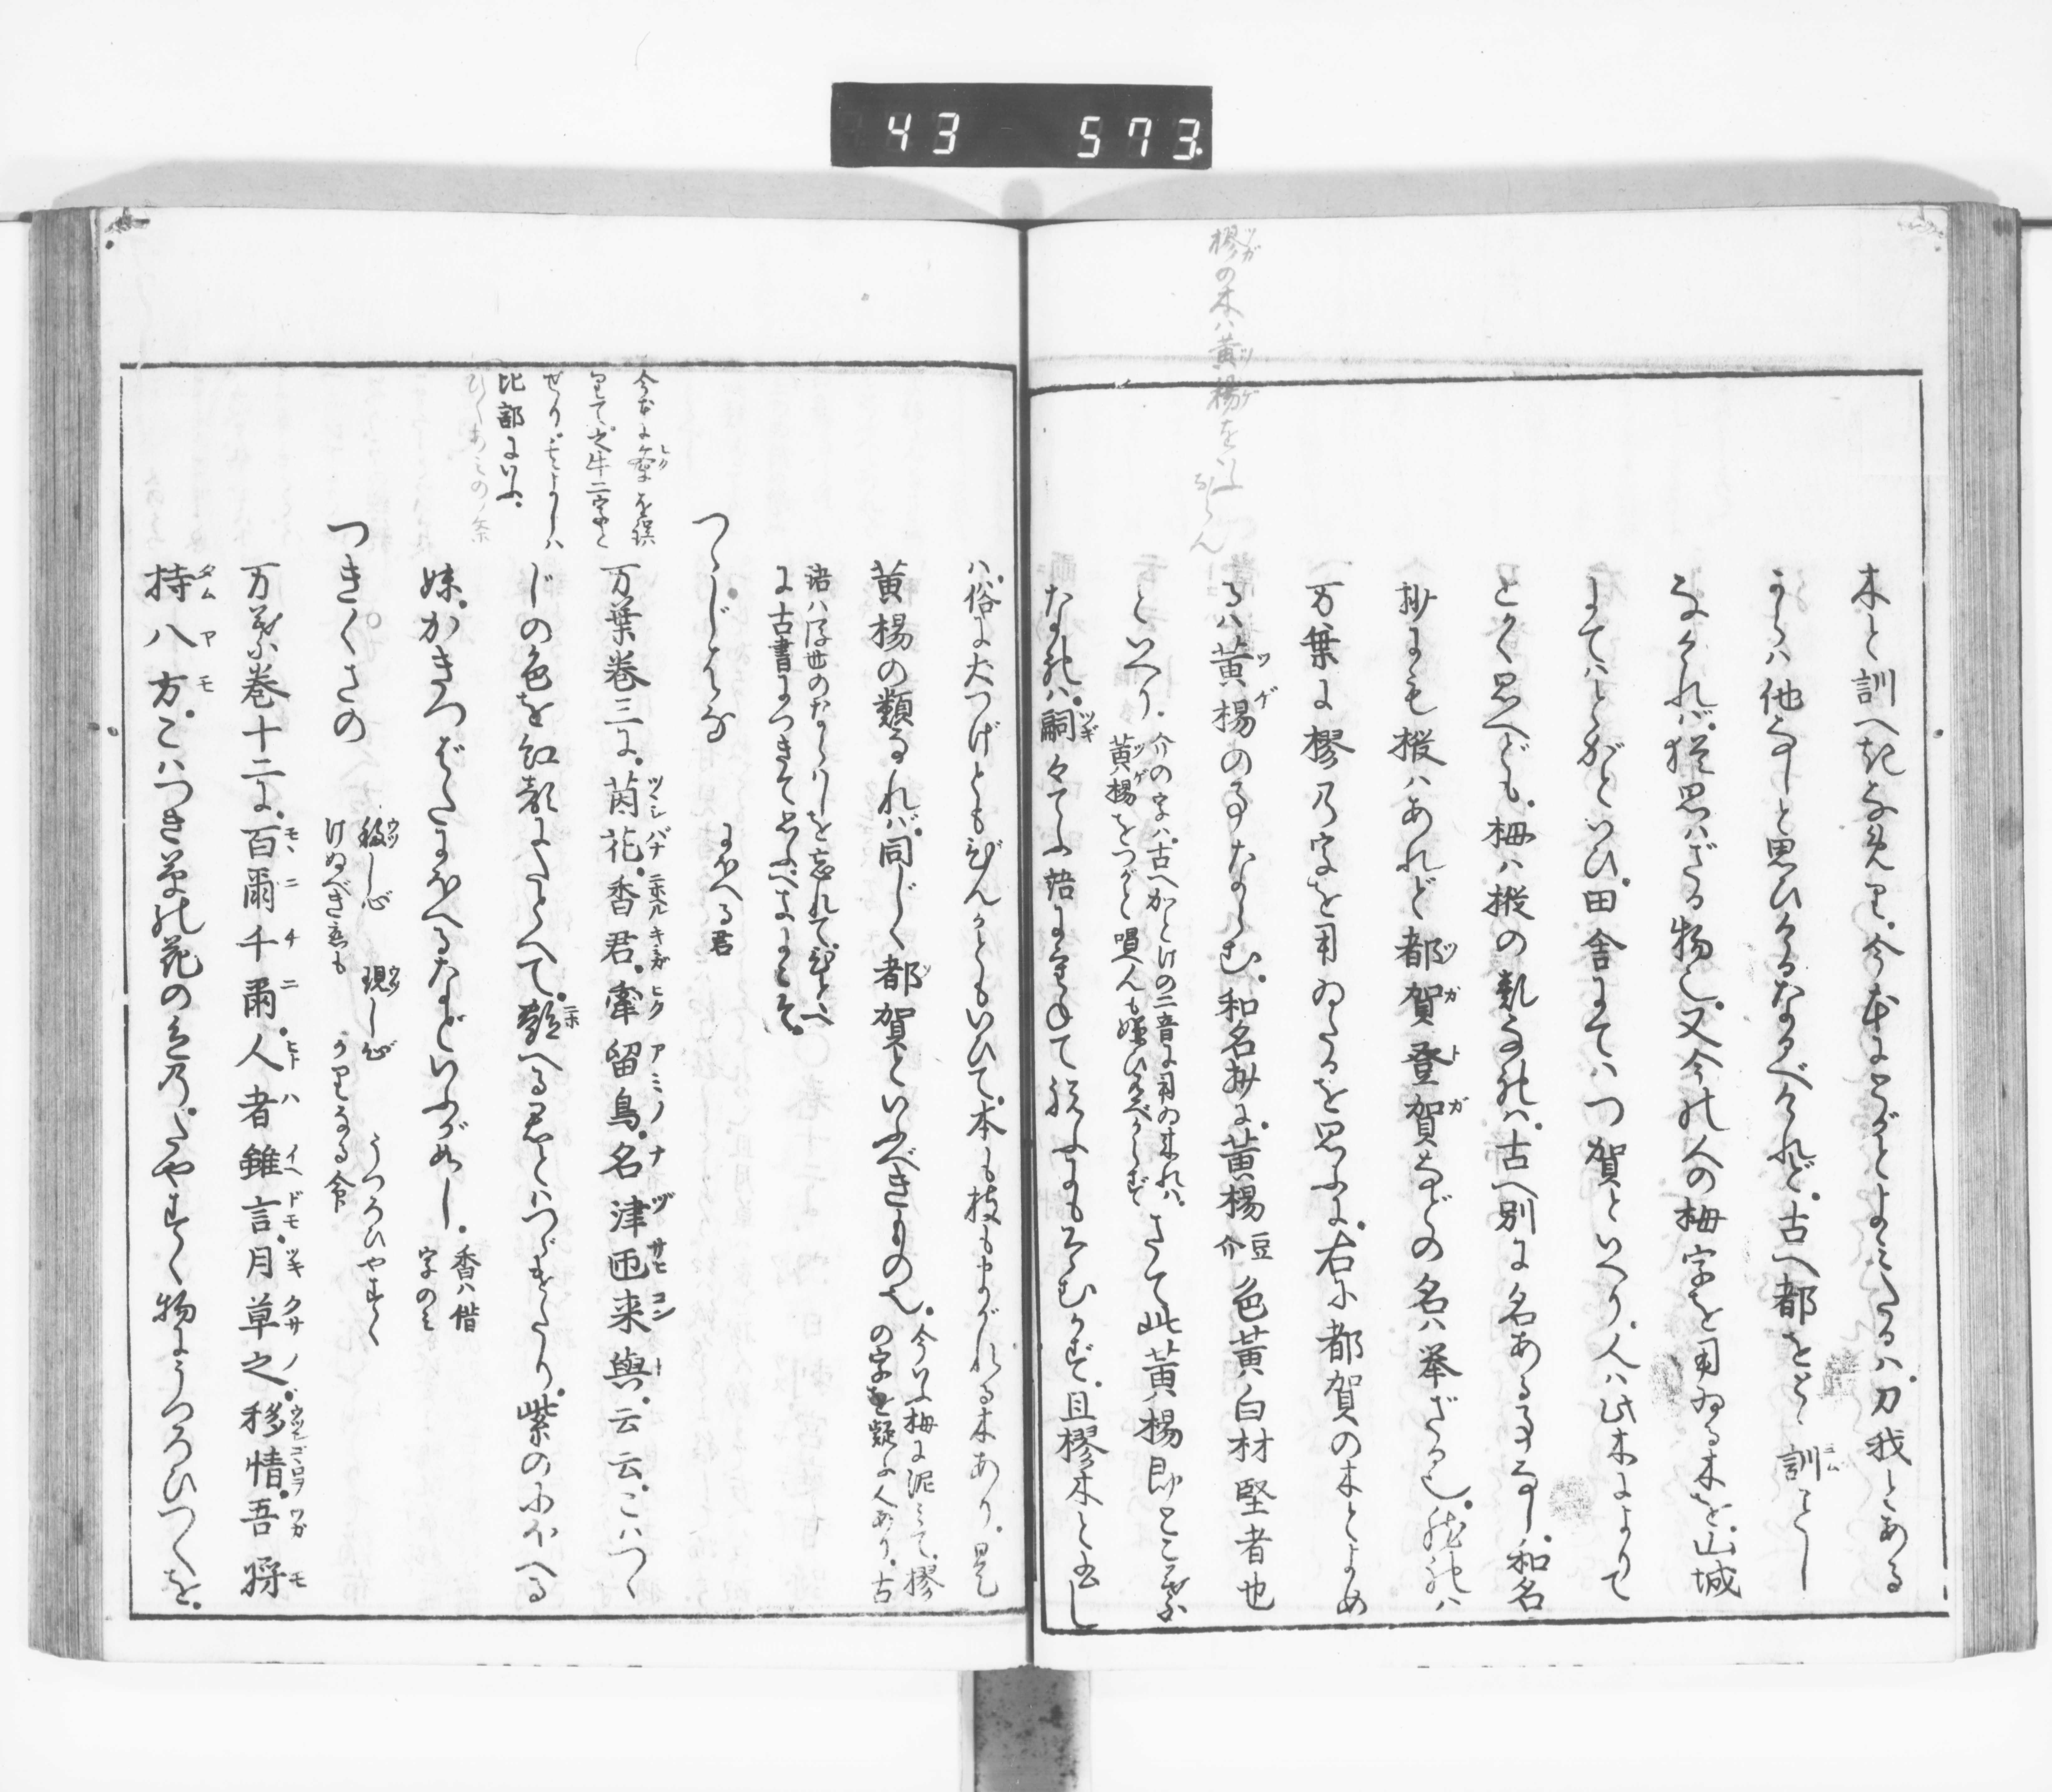 43 573
樛の木ハ黄楊をいふ
ならん
木と訓へき
今本にとがとよみたるハ刀我とある
他なしと思ひけるなるべけれど古へ都をと訓ことし
なけれバ猶思ハざる物也又今の人の栂字を用ゐる木を山城
にてハとがといひ田舎にてハつ賀といへり人ハ此木によりて
とく思へども栂ハ樅の類なれハ古へ別に名ある事なし和名
抄にも樅ハあれど都賀登賀などの名ハ挙ざる也然れハ
万葉に樛乃字を用ゐたるを思ふに右に都賀の木とよめ
るハ黄楊の事ならむ和名抄に黄楊豆介色黄白材堅者也
といへり介の字ハ古へかとけの二音に用ゐ来れハ
黄楊をつがと唱んも嫌ひ有べからず
さて此黄楊即とこ葉
なれハ嗣々てふ語に
且樛木と書し
ハ俗に犬つげともびんかともいひて本も枝もまがれる木あり是も
黄楊の類なれバ同じく都賀といふべきもの也
今いふ栂に泥ミて樛
の字を疑ふ人あり古
語ハ後世のならハしを忘れて
に古書につきて思ふべき
つゝじはな
にほへる君
万葉巻三に茵花香君牽留鳥名津匝来與云云こハつゝ
じの色を紅顔にたとへて艶へる君とハつゞけたり紫のにほへる
妹かきつばたにほへるなどいふが如し
香ハ借
字のミ
今本に牽を誤
りて之牛二字と
せりそのよしハ
比部にいふ
ひくあミの条
つきくさの
移し心 現し心 うつろひやすく
けぬべき恋も かりなる命
万葉巻十二に百爾千爾人者雖言月草之移情吾将
持八方こハつき草の花の色乃たやすく物にうつろひつくを